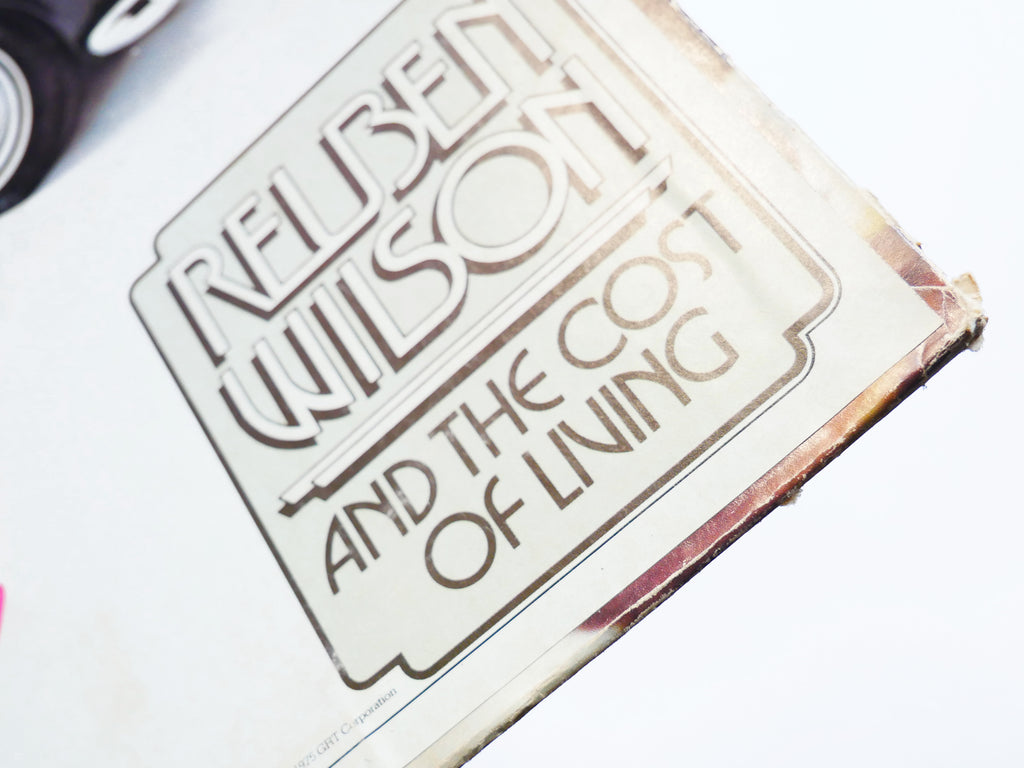 REUBEN
WILSON
AND THE COST
OF LIVING
1975 GRT Corporation